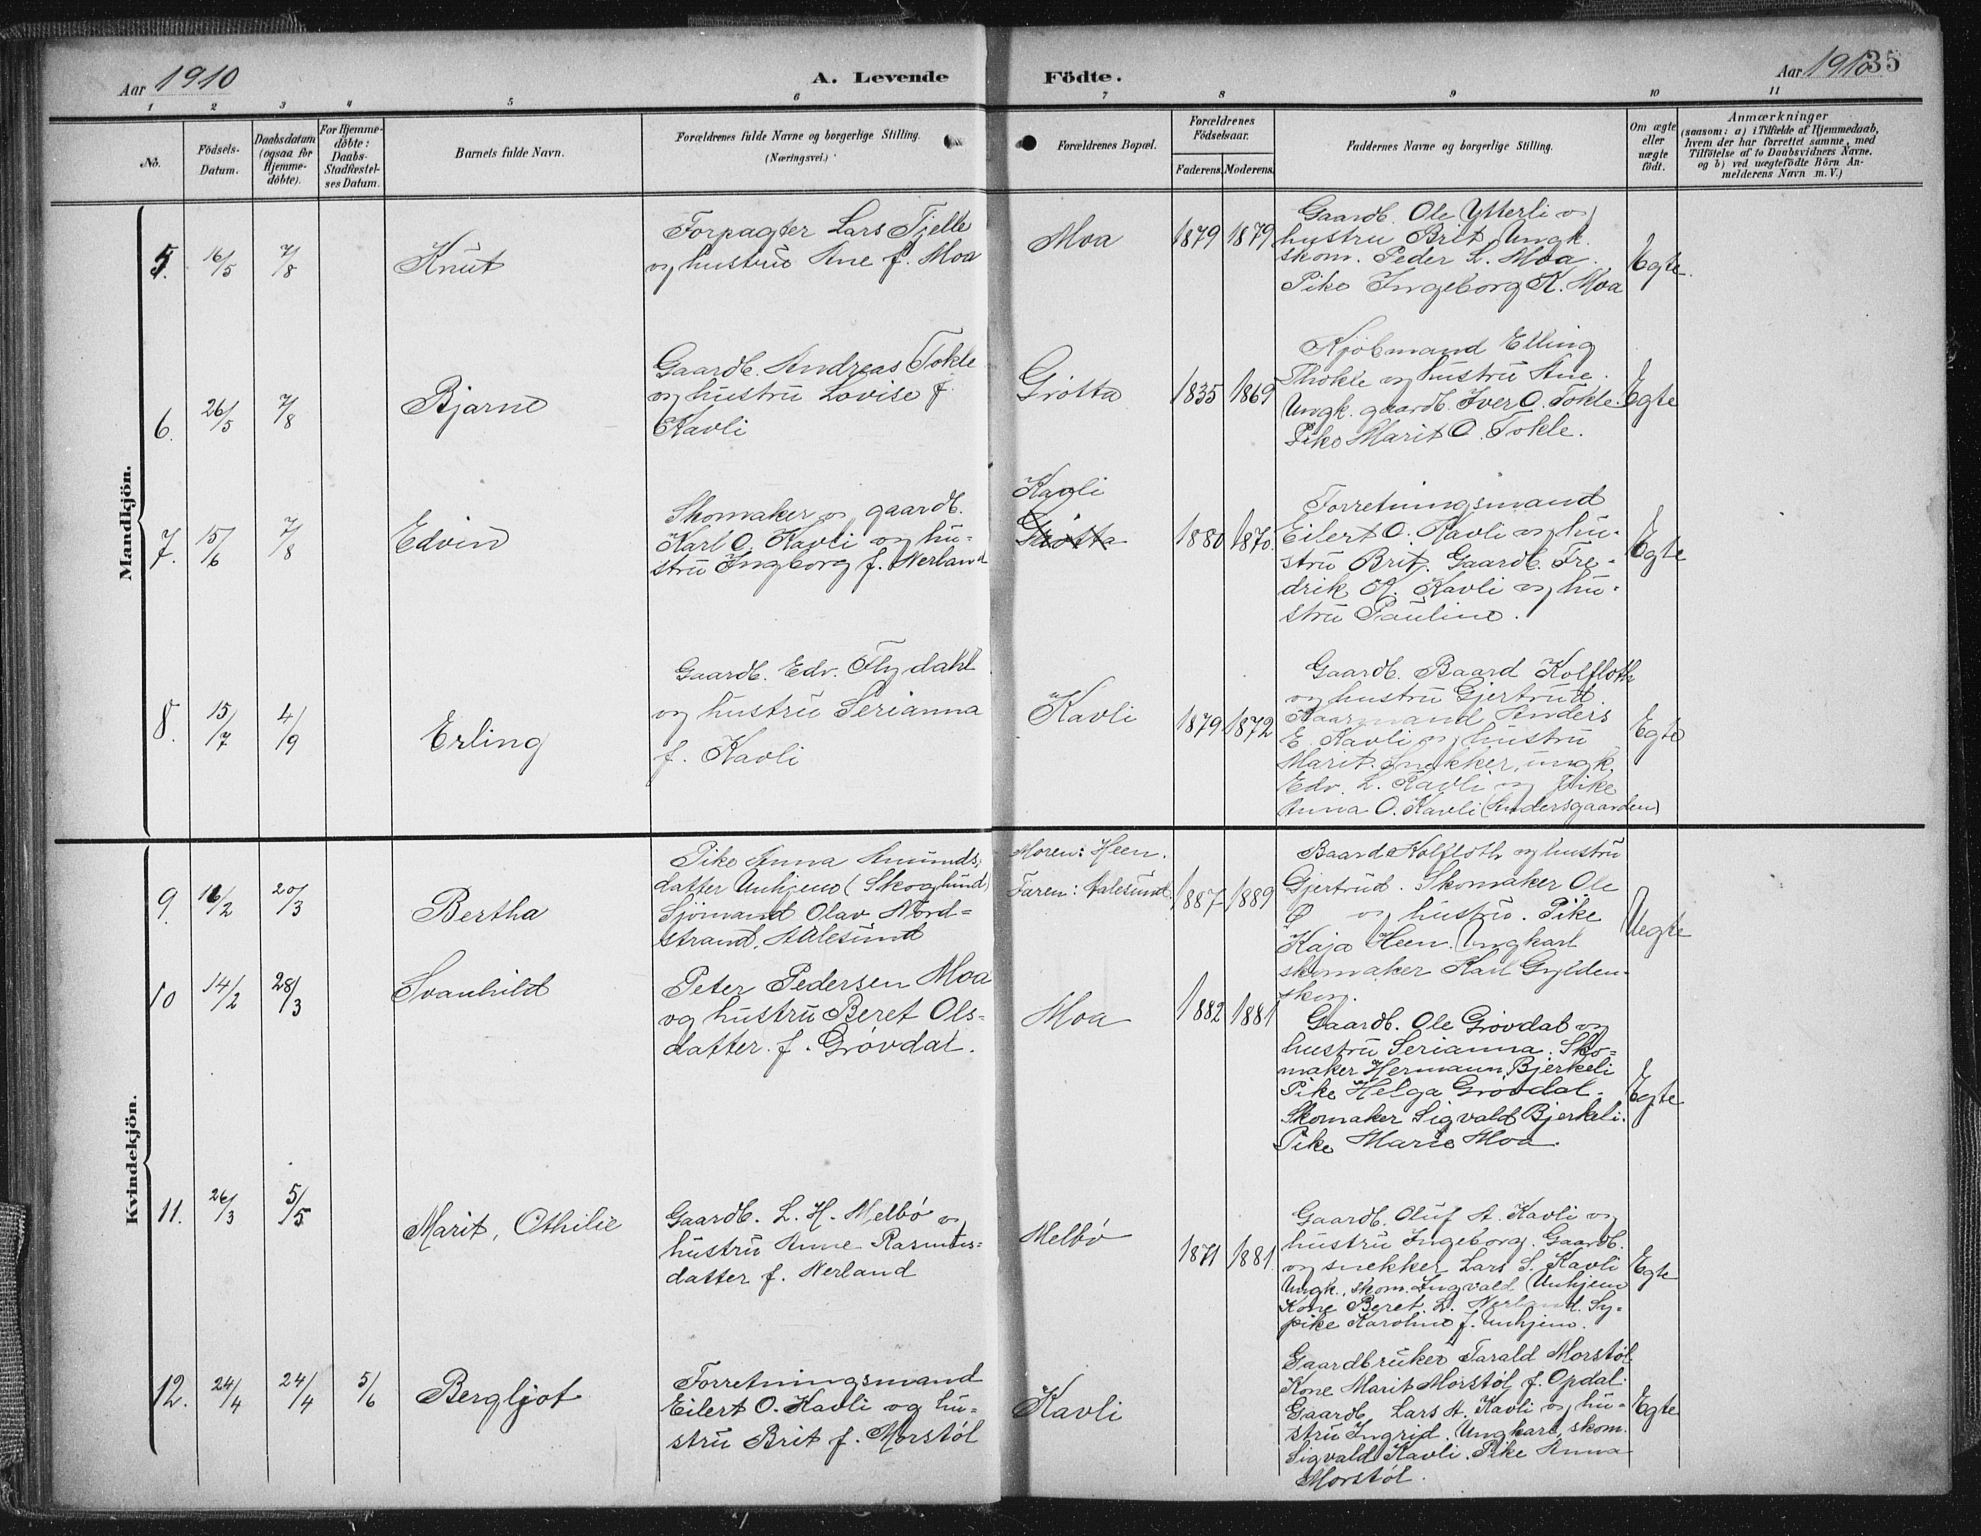 Aar 1910
A. Levende Födte.
Aar 1910 35
1 2 3 4 5 6 7 8 9 10 11
No.
Födsels-
Datum.
Daabsdatum
(ogsaa för
Hjemme-
döbte).
For Hjemme-
döbte:
Daabs-
Stadfæstel-
ses Datum.
Barnets fulde Navn.
Forældrenes fulde Navne og borgerlige Stilling.
(Næringsvei.)
Forældrenes Bopæl.
Forældrenes
Födselsaar.
Faderens. Moderens.
Faddernes Navne og borgerlige Stilling.
Om ægte
eller
uægte
födt.
Anmærkninger
(saasom: a) i Tilfælde af Hjemmedaab,
hvem der har forrettet samme, med
Tilföielse af to Daabsvidners Navne.
og b) ved uægtefödte Börn An-
melderens Navn m. V.)
Mandkjön.
5. 16/5 7/8
Knut
Forpagter Lars Tjelle
og hustru Ane f. Moa
Moa
1879 1879
Gaardb. Ole Ytterli og
hustru Brit. Ungk.
skom. Peder L. Moa.
Pike Ingeborg K. Moa
Egte.
6. 26/5 7/8
Bjarne
Gaardb. Andreas Tokle
og hustru Lovise f.
Kavli
Grötta
1835 1869
Kjöbmand Elling
Thokle og hustru Ane.
Ungk. gaardb. Iver O. Tokle.
Pike Marit O. Tokle.
Egte
7. 15/6 7/8
Edvin
Skomaker og gaardb.
Karl O. Kavli og hu-
stru Ingborg f. Nerland
Kavli
Grötta
1880 1870.
Forretningsmand
Eilert O. Kavli og hu-
stru Brit. Gaardb. Fre-
drik K. Kavli og hu-
stru Pauline.
Egte
8. 15/7 4/9
Erling
Gaardb. Edv. Flydahl
og hustru Serianna
f. Kavli
Kavli
1879 1872
Gaardb. Baard Kolfloth
og hustru Gjertrud.
Kaarmand Anders
E. Kavli og hustru
Marit. Snekker, ungk.
Edv. L. Kavli og Pike
Anna O. Kavli (Andersgaarden)
Egte
Kvindekjön.
9. 16/2 20/3
Bertha
Pike Anna Amunds-
datter Unhjem (Skoglund)
Sjömand Olav Nord-
strand, Aalesund
Moren: Heen.
Faren: Aalesund
1887 1889
Baard Kolfloth og hustru
Gjertrud. Skomaker Ole
Ø og hustru. Pike
Kaja Heen. Ungkarl
skomaker Karl Gylden-
skog.
Uegte
10 14/2 28/3
Svanhild
Peter Pedersen Moa
og hustru Beret Ols-
datter f. Grövdal.
Moa
1882 1881
Gaardb. Ole Grövdal og
hustru Serianna. Sko-
maker Hermann Bjerkeli
Pike Helga Grövdal.
Skomaker Sigvald Bjerkeli.
Pike Marie Moa.
Egte
11. 26/3 5/5
Marit, Othilie
Gaardb. L. H. Melbö og
hustru Anne Rasmus-
datter f. Nerland
Melbö
1871 1881
Gaardb. Oluf A. Kavli og
hustru Ingeborg. Gaardb.
og snekker Lars S. Kavli
Ungk. skom. Ingvald Unhjem
Kone Beret L. Nerland. Sy-
pike Karoline f. Unhjem.
Egte
12. 24/4 24/4 5/6
Bergljot
Forretningsmand
Eilert O. Kavli og hu-
stru Brit f. Morstöl
Kavli
Gaardbruker Tarald Morstöl
Kone Marit Morstöl f. Opdal.
Gaardb. Lars A. Kavli og hu-
stru Ingrid. Ungkarl, skom.
Sigvald Kavli. Pike Anna
Morstöl.
Egte